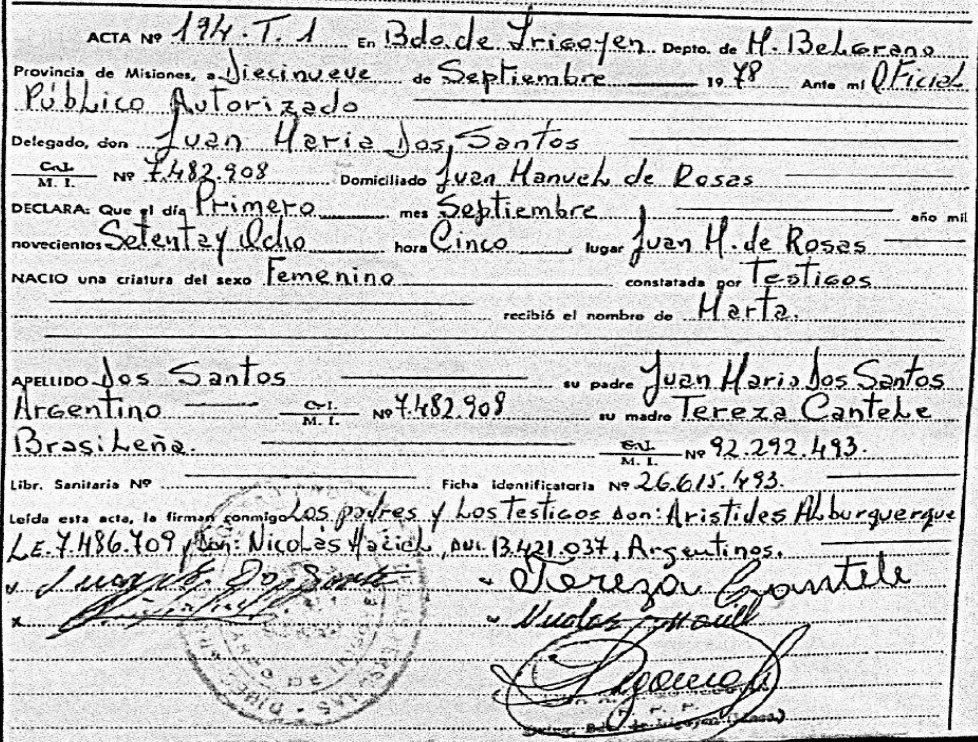 ACTA Nº 194.T.1 En Bdo.de Irigoyen Depto. de M. Belgrano
Provincia de Misiones, a Diecinueve de Septiembre 19 78 Ante mi Oficial
Público Autorizado
Delegado, don Juan Maria Dos Santos
C.I. M. I. Nº 7.482.908 Domiciliado Juan Manuel de Rosas
DECLARA: Que el día Primero mes Septiembre año mil
novecientos Setenta y Ocho hora Cinco, lugar Juan M. de Rosas
NACIO una criatura del sexo Femenino constatada por Testigos
recibió el nombre de Marta.
APELLIDO Dos Santos su padre Juan Maria Dos Santos
Argentino C.I. M. I. Nº 7.482.908 su madre Tereza Cantele
Brasileña. C.I. M. I. Nº 92.292.493.
Libr. Sanitaria Nº Ficha identificatoria Nº 26.615.493.
Leída esta acta, la firman conmigo Los padres y Los testigos don: Aristides Alburquerque
L.E. 7.486.709, don: Nicolas Maciel, DNI. 13.421.037, Argentinos.
x x Tereza Cantele
x x